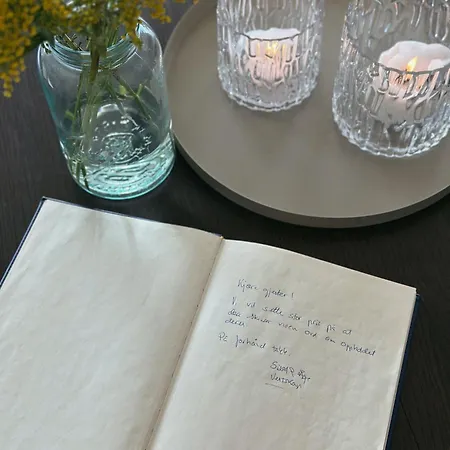 Kjære gjester!
Vi vil sette stor pris på at
dere skriver noen ord om oppholdet
deres
På forhånd takk